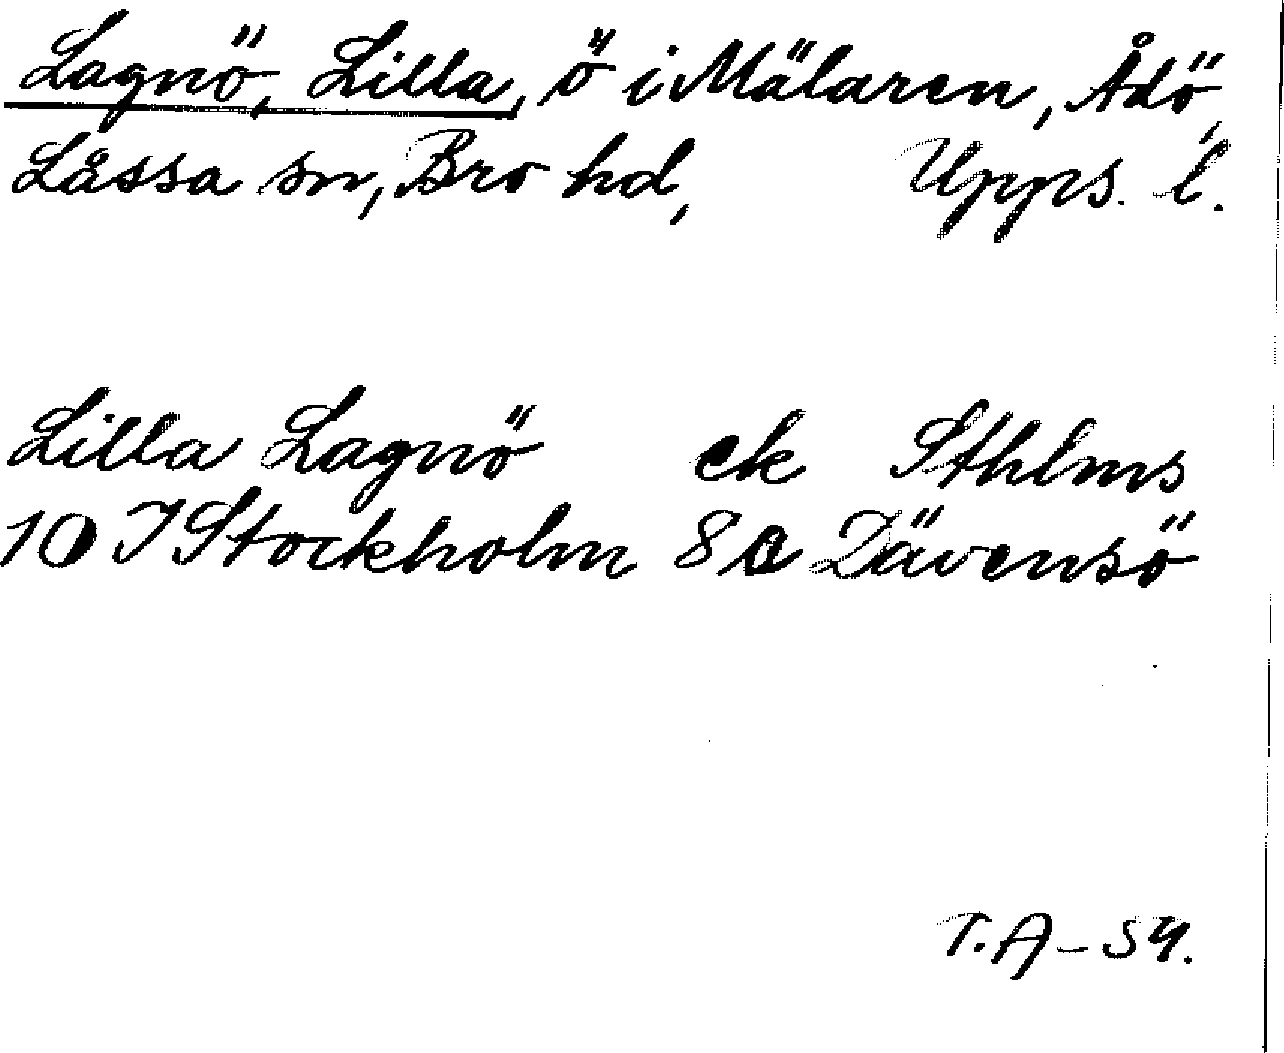 Lagnö, Lilla, ö i Mälaren, Ådö,
Låssa sn, Bro hd, Upps. l.
Lilla Lagnö ek Sthlms
10 I Stockholm 8 c Dävensö
T.A-54.